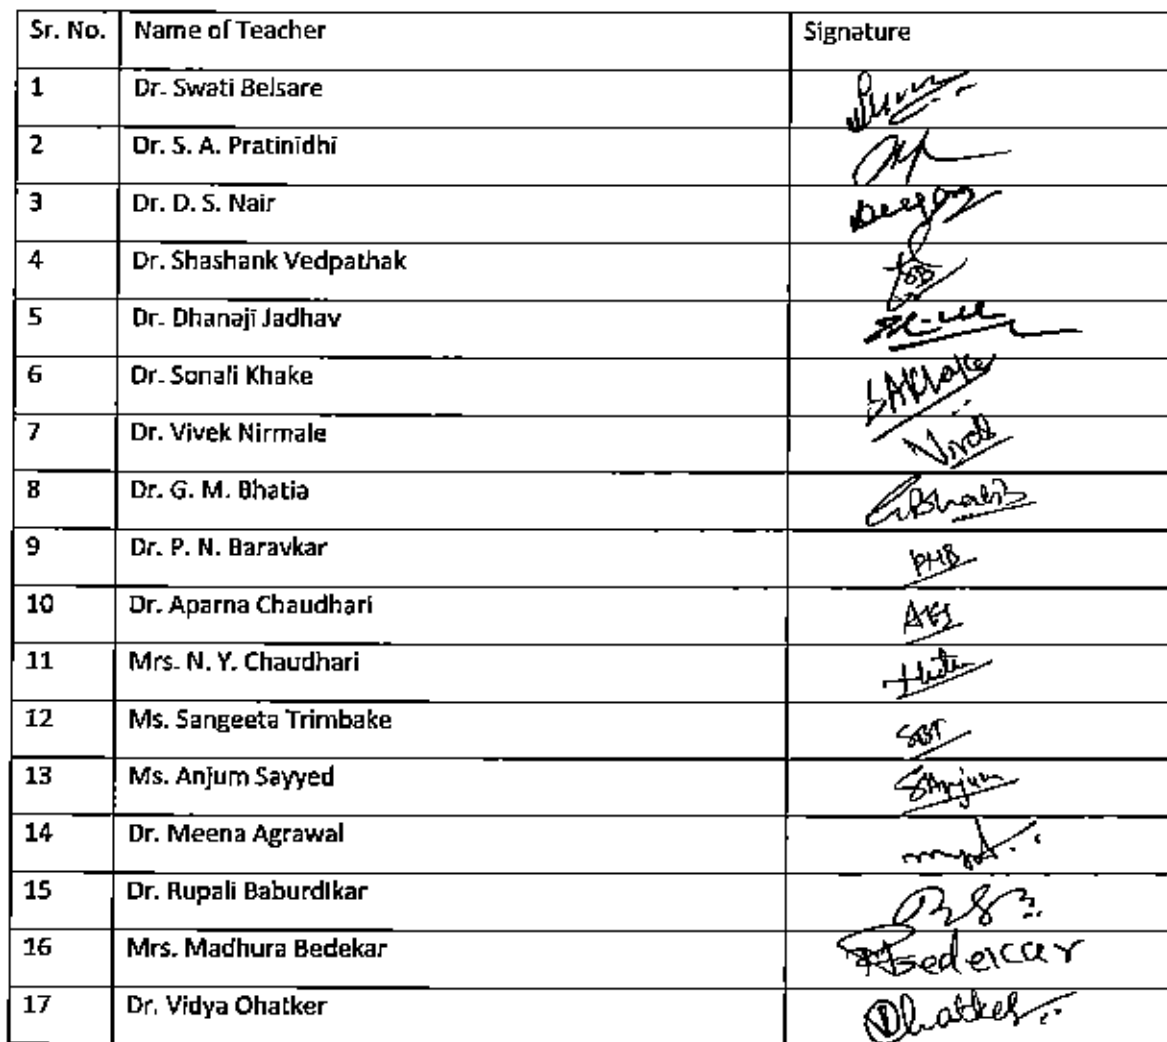 Sr. No. Name of Teacher Signature
1 Dr. Swati Belsare
2 Dr. S. A. Pratinidhi
3 Dr. D. S. Nair
4 Dr. Shashank Vedpathak
5 Dr. Dhanaji Jadhav
6 Dr. Sonali Khake SAKhake
7 Dr. Vivek Nirmale
8 Dr. G. M. Bhatia
9 Dr. P. N. Baravkar PNB
10 Dr. Aparna Chaudhari
11 Mrs. N. Y. Chaudhari
12 Ms. Sangeeta Trimbake SBT
13 Ms. Anjum Sayyed SAnjum
14 Dr. Meena Agrawal
15 Dr. Rupali Baburdikar
16 Mrs. Madhura Bedekar Bedekar
17 Dr. Vidya Ohatker